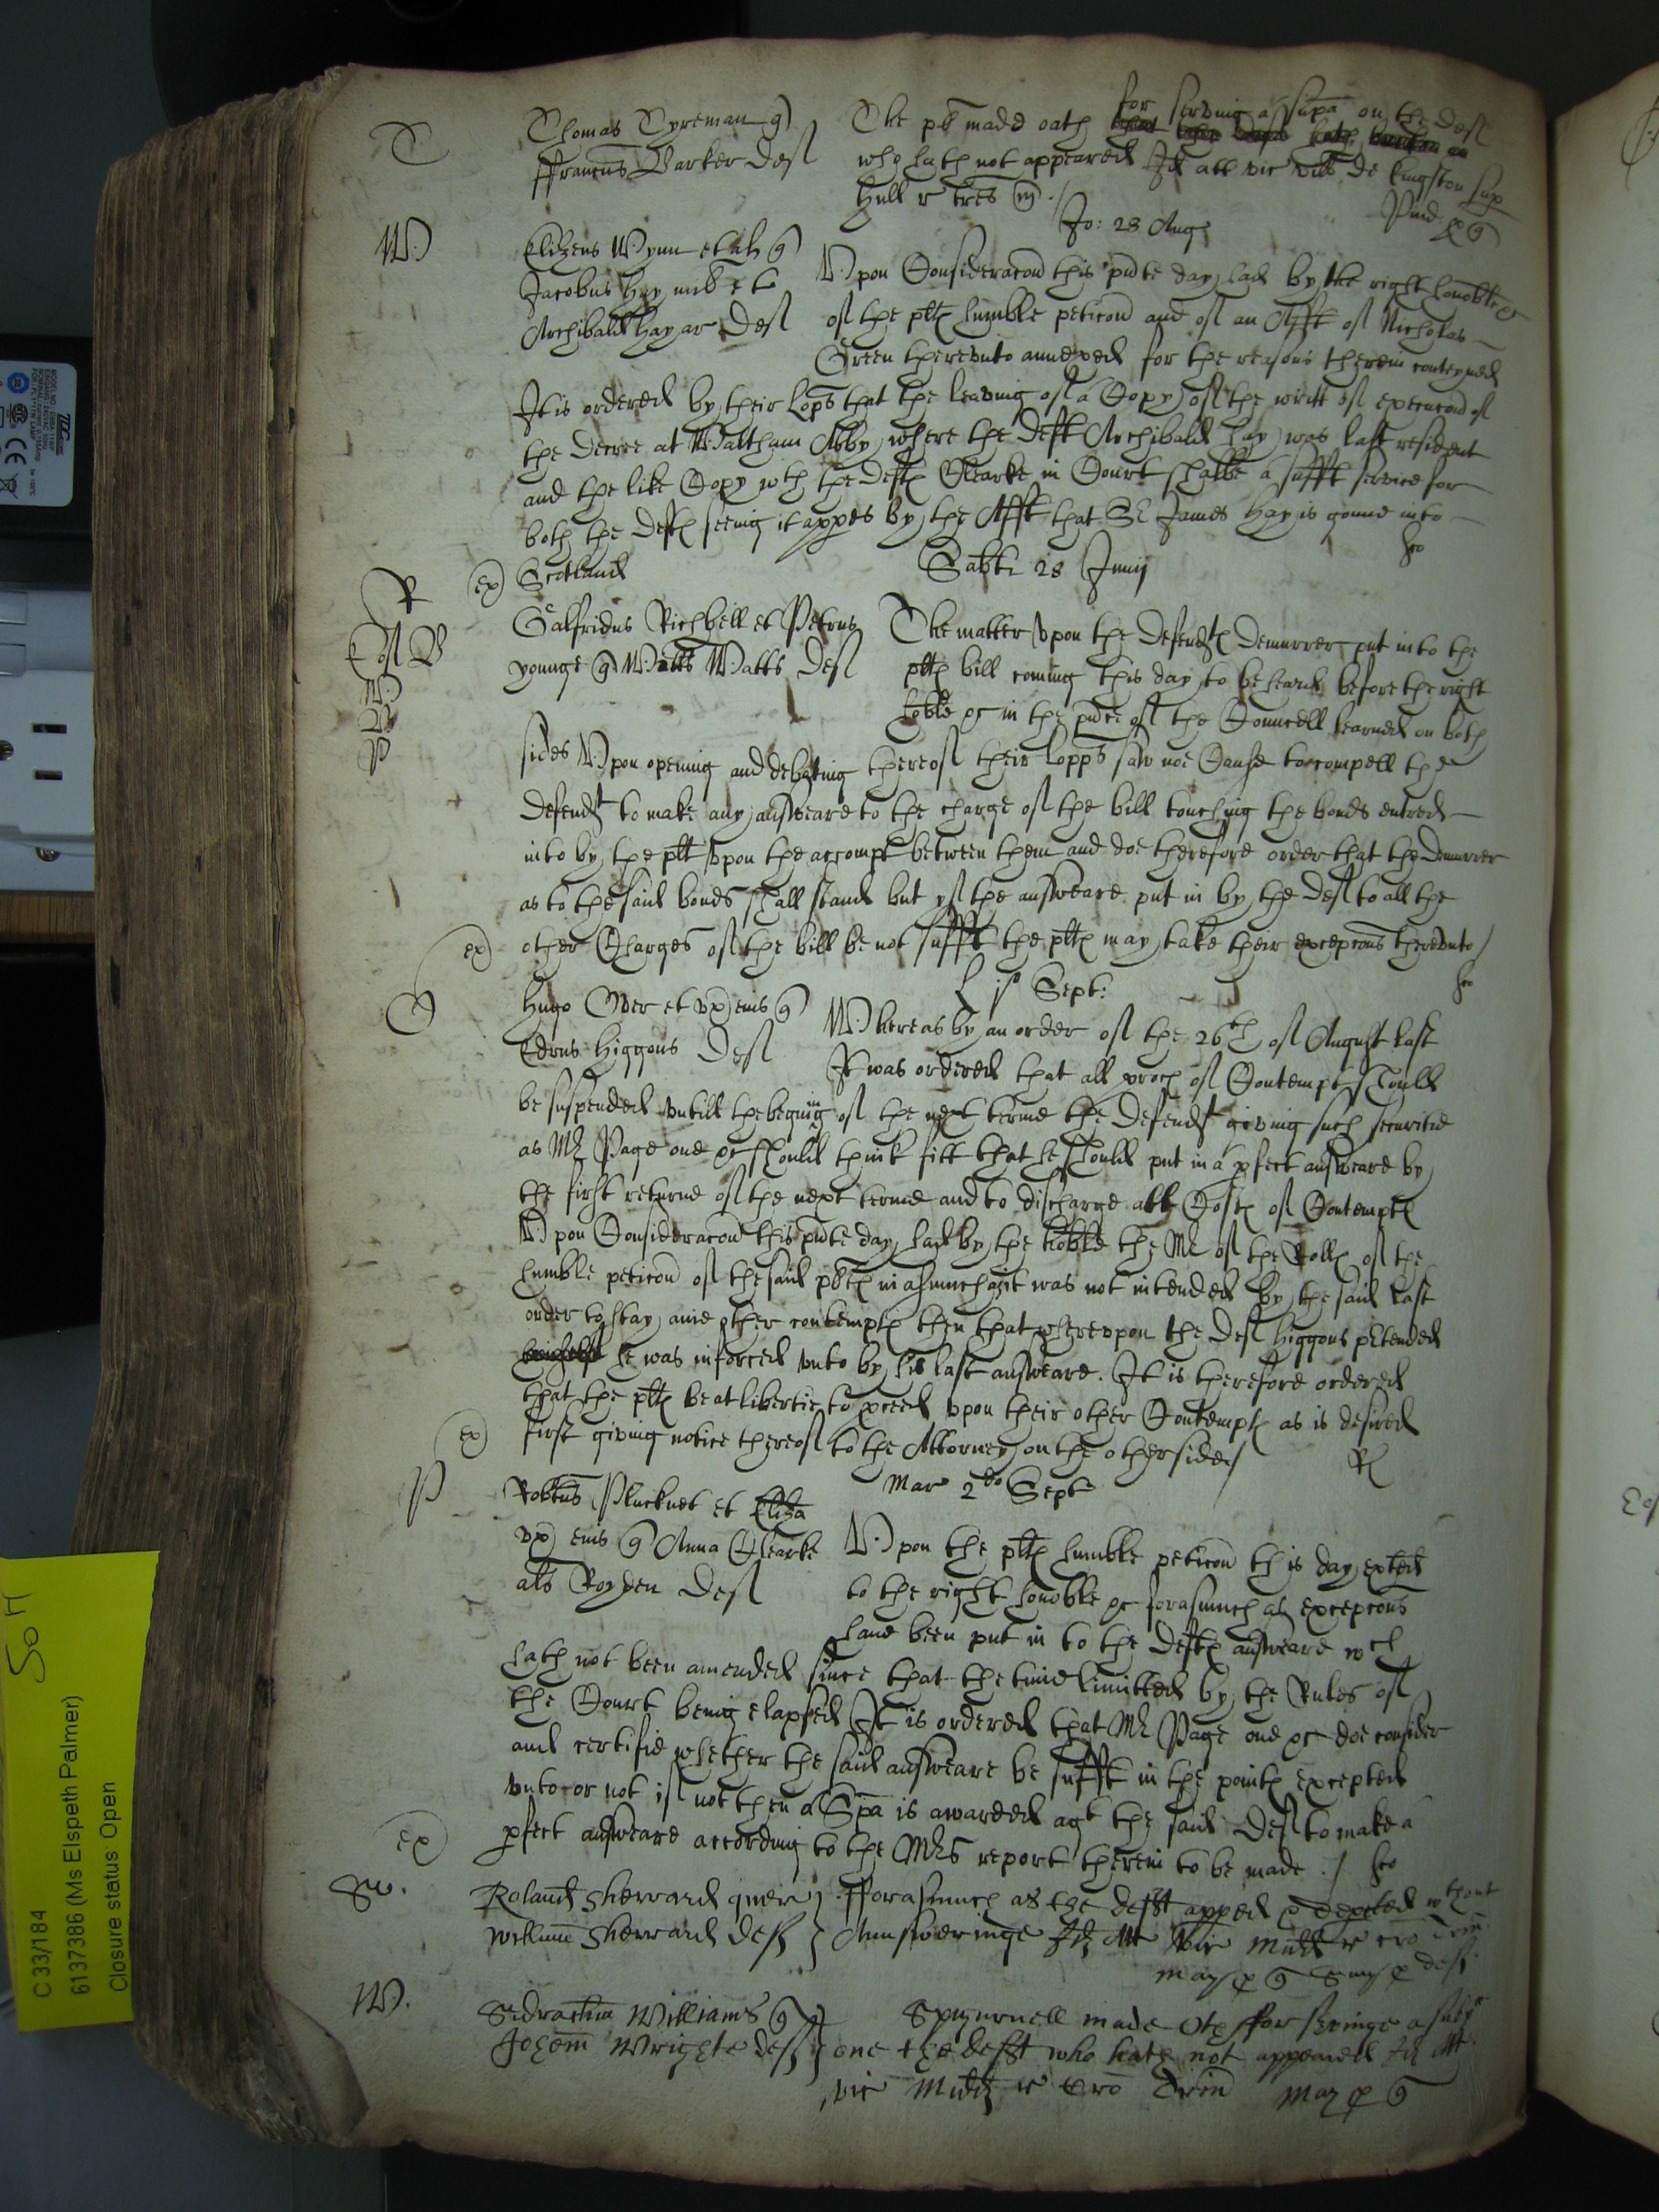 T
Thomas Tyreman q
ffrancus Barker Def
The pl made oath for serving a Supa on the def
who hath not appeared Id att vic vill de Kingston sup
Hull r tres m
Jo: 28 Aug
W
Elizeus Wynn et al q
Jacobus Hay mil et
Archibald Hay ar Def
Vpon Consideracon this pnte day had by the right honoble
of the plts humble peticon and of an Afft of Nicholas
Green therevnto annexed for the reasons therein conteyned
It is ordered by their Lops that the leaving of a Copy of the writt of execucon of
the decree at Waltham Abby where the deft Archibald Hay was last resident
and the like Copy wth the defts Clearke in Court shalbe a sufft service for
both the defts seeing it appes by the Afft that Sr James Hay is gonne into
ex Scotland
Sabti 28 Junij
R
Galfridus Richbell et Petrus
younge q Watts Def
The matter vpon the defendts Demurrer put into the
plts bill coming this day to be heard before the right
hoble &c in the pnce of the Councell learned on both
sides Vpon opening and debating thereof their Lopps saw noe Cause to compell the
defendt to make any answeare to the charge of the bill touching the bonds entred
into by the plt vpon the accompt between them and doe therefore order that the demurrer
as to the said bonds shall stand but yf the answeare put in by the def to all the
ex other Charges of the bill be not sufft the plts may take their excepcons therevnto
L jo Sept:
O
Hugo Over et vx eius q
Edrus Higgons Def
Whereas by an order of the 26th of August last
It was ordered that all proces of Contempt should
be suspended vntill the begining of the next terme the defendt giving such securitie
as Mr Page one &c should think fitt that he should put in a pfect answeare by
the first returne of the next terme and to discharge all Costs of Contempts
Vpon Consideracon this pnte day had by the hoble the Mr of the Rolls of the
humble peticon of the said plts in asmuch as it was not intended by the said last
order to stay anie other contempts then that wherevpon the def Higgons ptended
he was inforced vnto by his last answeare. It is therefore ordered
that the plts be at libertie to pceed vpon their other Contempts as is desired
ex first giving notice thereof to the Attorney on the other side
Mar 2do Sept
P
Robtus Plucknet et Eliza
vx eius q Anna Clearke
als Royden Def
Vpon the plts humble peticon this day exted
to the right honoble &c forasmuch as excepcons
have been put in to the defts answeare wch
hath not been amended since that the time limitted by the Rules of
the Court being elapsed It is ordered that Mr Page one &c doe consider
and certifie whether the said answeare be sufft in the points excepted
vnto or not if not then a Spa is awarded agt the said Def to make a
ex pfect answeare according to the Mrs report therein to be made
Roland Sherrard quer
Willum Sherrard def
fforasmuch as the defft apped & depted wthout
Aunsweringe Id Att vic Midd r cro Trin
May p q def
W.
Williams q
Johem Wrighte def
made oth ffor servinge a subp
one the defft who hath not appeared Id Att
vic Midd r cro Trin May p q
C 33/184
6137386 (Ms Elspeth Palmer)
Closure status: Open